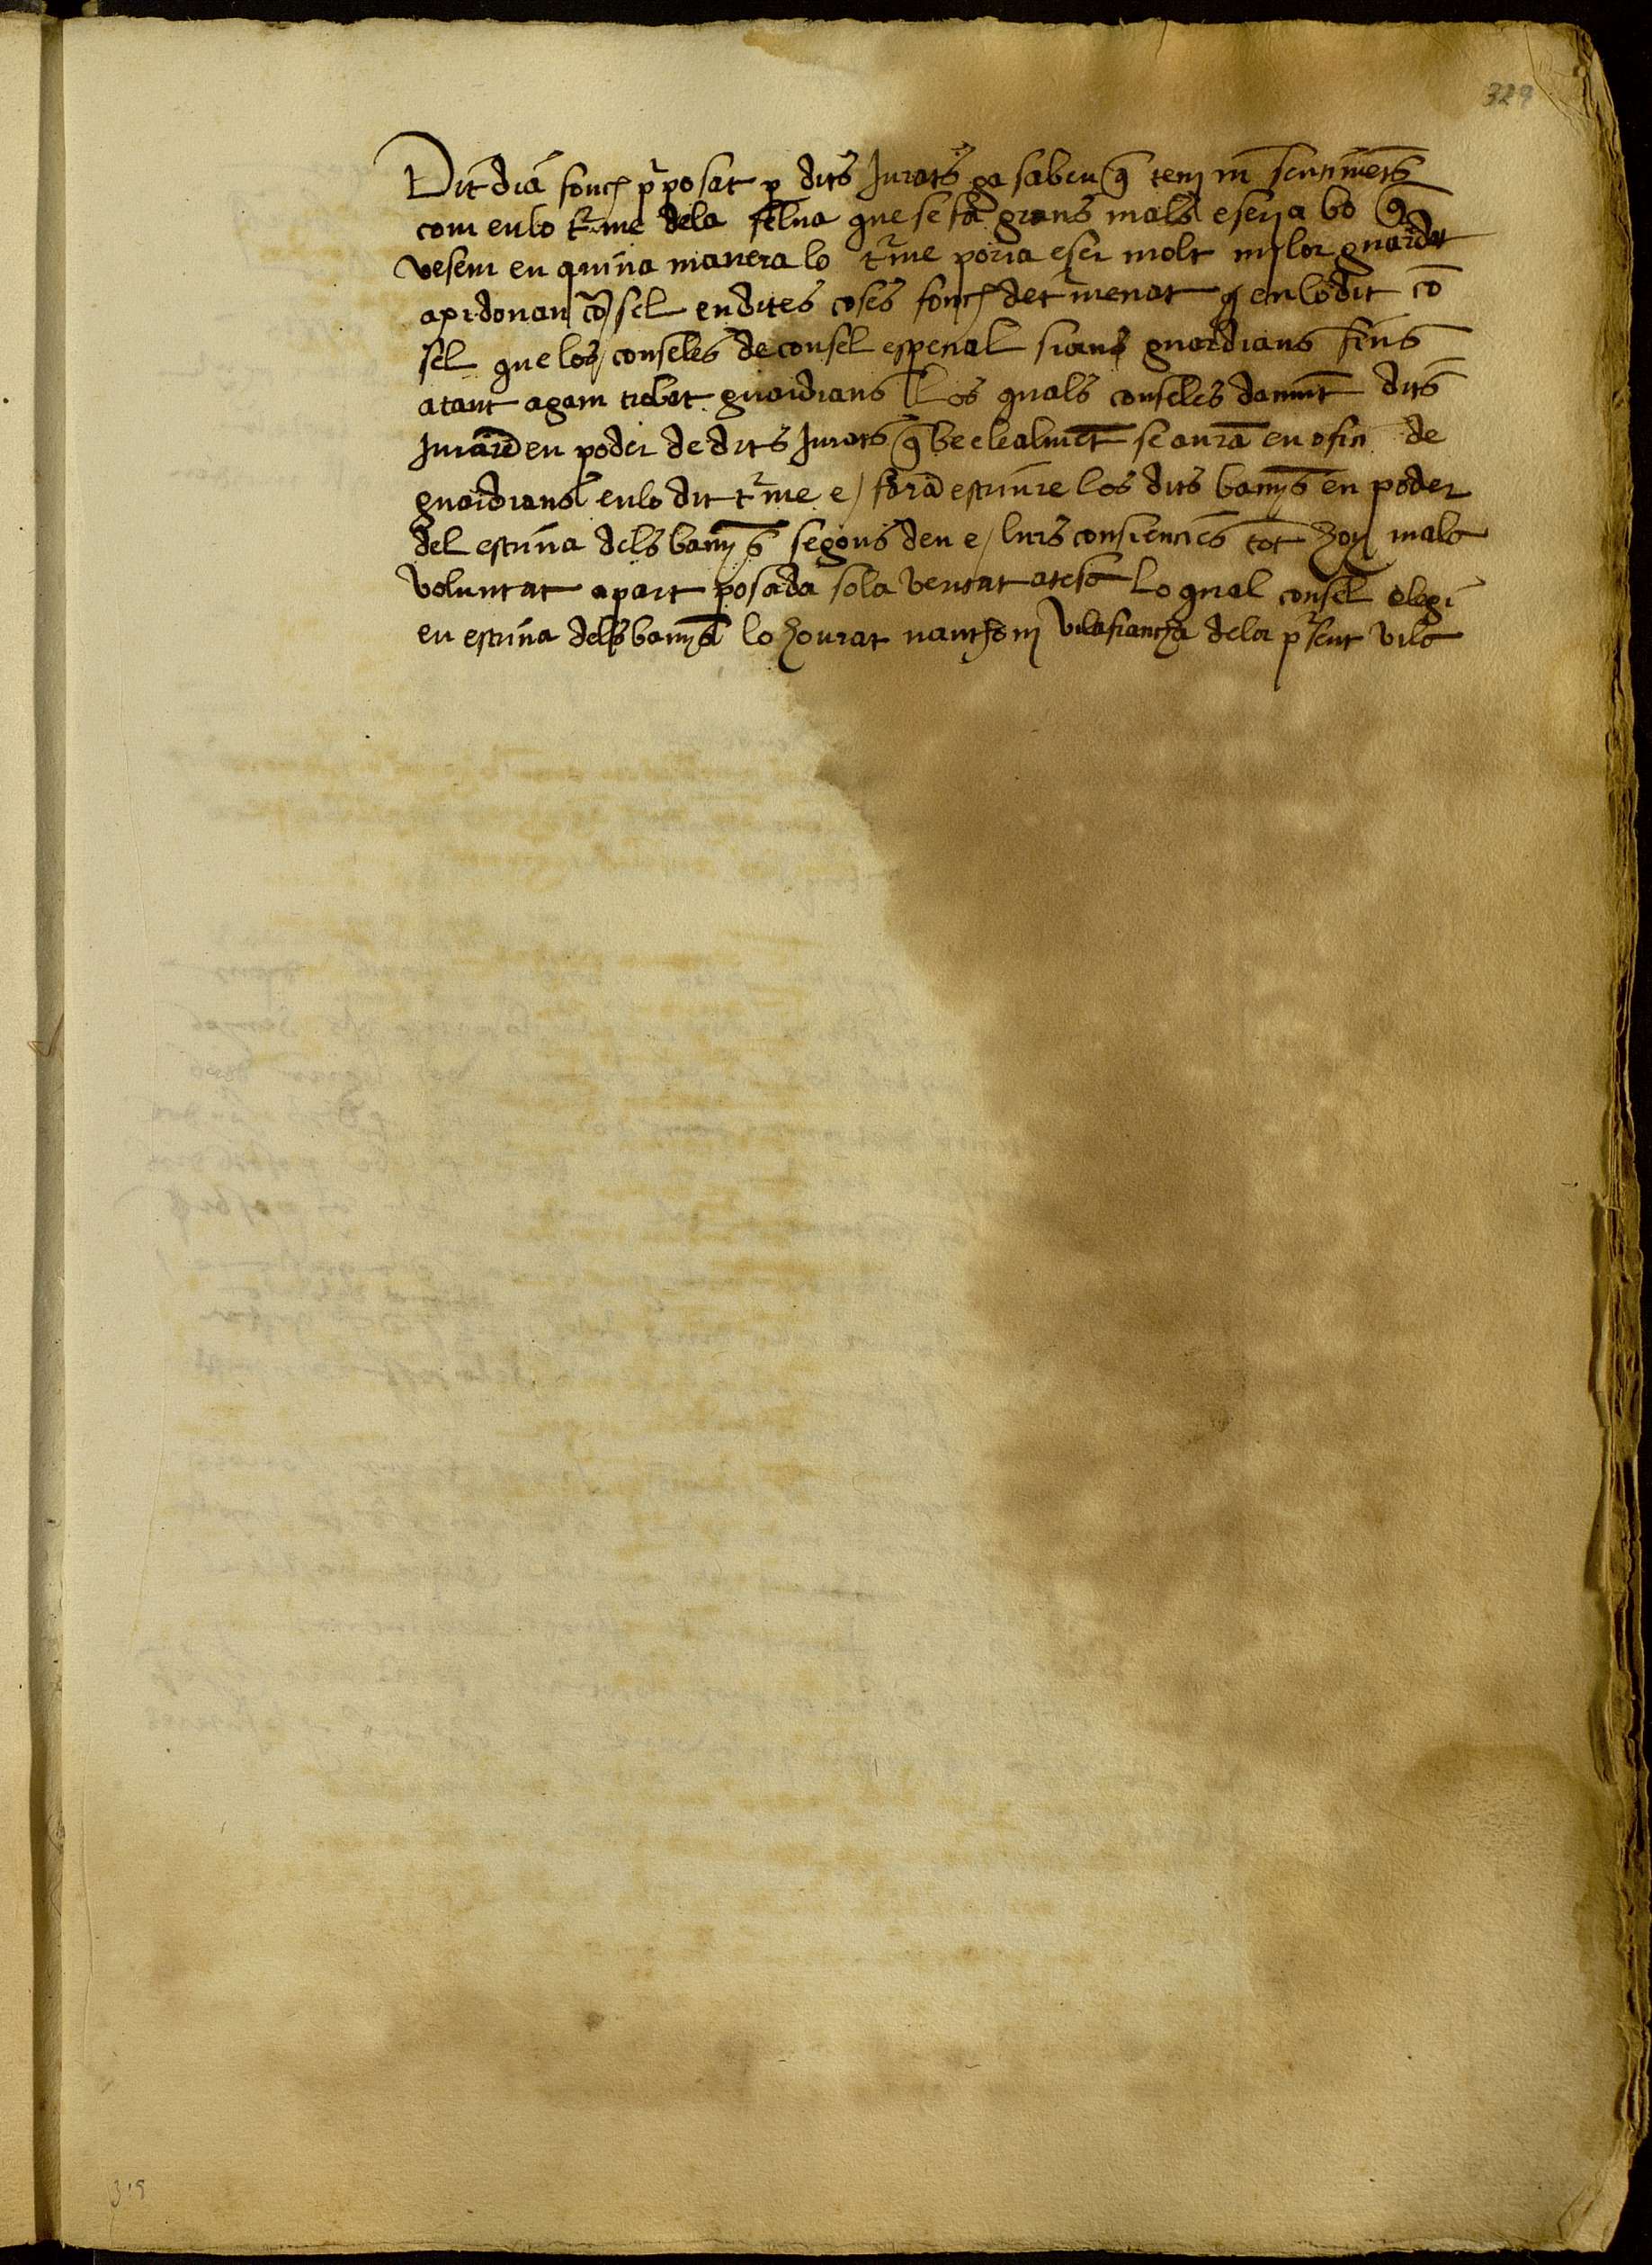 329
Dit dia fonch pposat p dits Jurats ja sabeu q tenj m sentimets
com en lo tme de la selva que se fa grans mals e serja bo q
vesem en quina manera lo tme poria eser molt mjlor guardat
api donan co sel en dites coses fonch detmenat q en lo dit co
sel que los conseles de consel espeçial sians guardians fins
a tant agam trobat guardians Los quals conseles damut dits
Juraro en poder de dits Jurats q be e lealmet se aura en ofiçi de
guardians en lo dit tme e fara escriure los dits banys en poder
del escriva dels banys segons deu e lurs consiencies tot hoy mala
voluntat apart posada sola veritat atesa Lo qual consel elegi
en escriva dels banys lo honrat nanthonj Vilafrancha de la psent vila
319